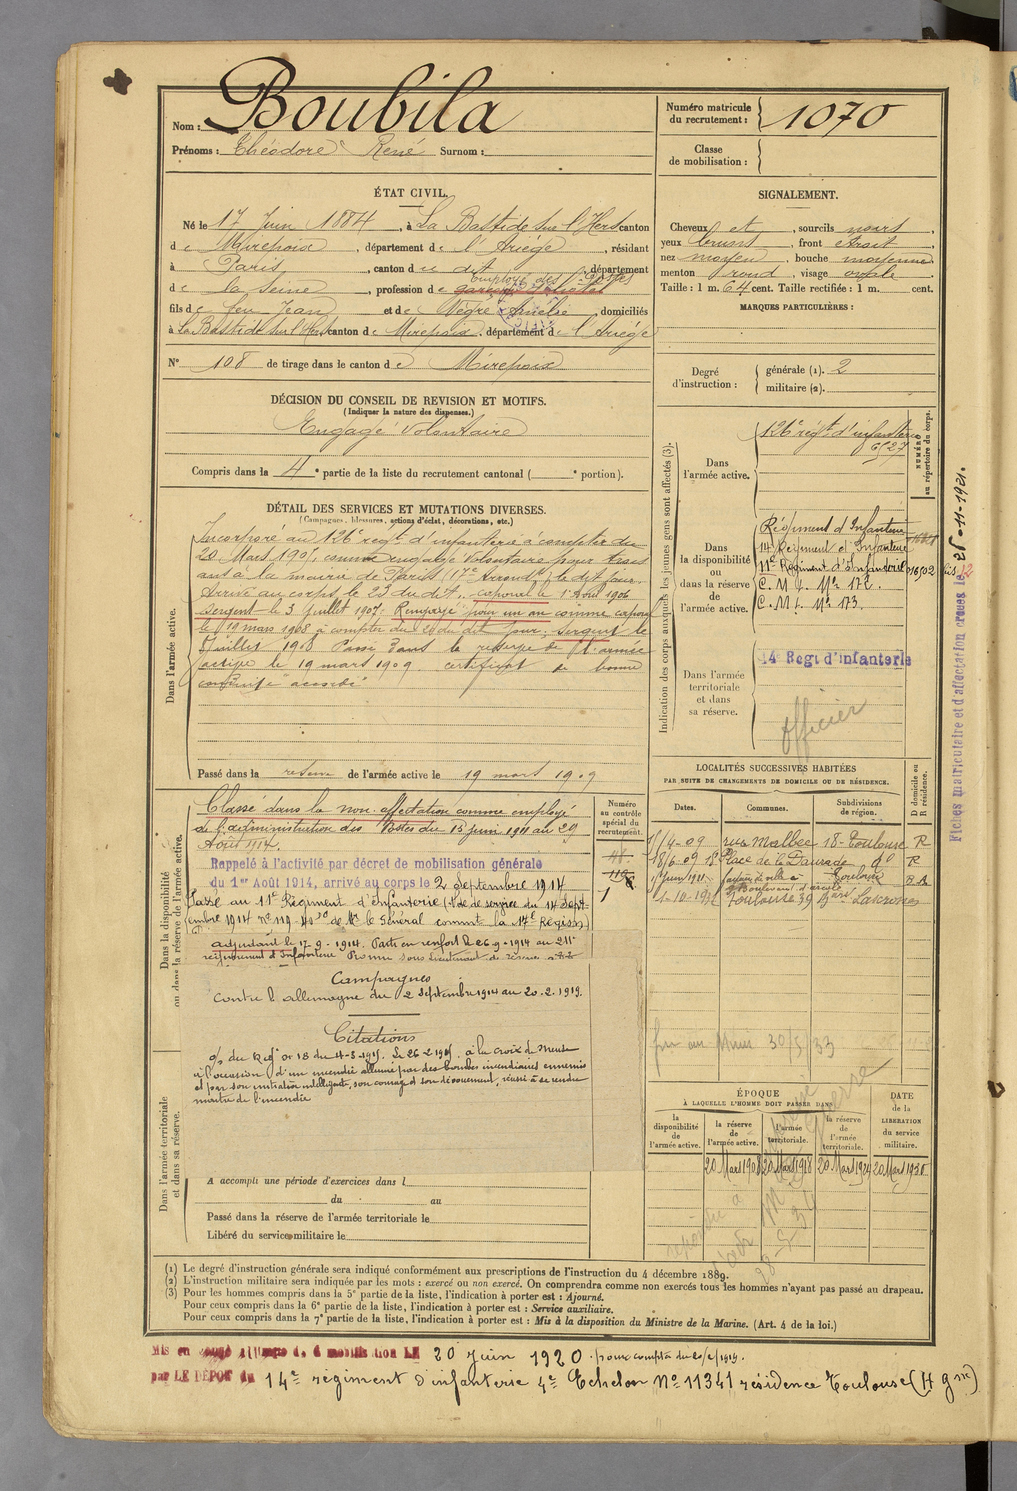 Nom : Boubila
Prénoms : Théodore René Surnom :
Numéro matricule du recrutement : 1070
Classe de mobilisation :
ÉTAT CIVIL.
Né le 17 Juin 1884, à La Bastide sur l'Hers canton
de Mirepoix, département de l'Ariège, résidant
à Paris, canton du dit, département
employé des Postes
de la Seine, profession de garçon
fils de feu Jean et de Nègre Amélie, domiciliés
à La Bastide sur l'Hers canton de Mirepoix, département de l'Ariège
N° 108 de tirage dans le canton de Mirepoix
SIGNALEMENT.
Cheveux et, sourcils noirs,
yeux bruns, front étroit,
nez moyen, bouche moyenne,
menton rond, visage ovale.
Taille : 1 m. 64 cent. Taille rectifiée : 1 m. cent.
MARQUES PARTICULIÈRES :
DÉCISION DU CONSEIL DE REVISION ET MOTIFS.
(Indiquer la nature des dispenses.)
Engagé Volontaire
Compris dans la 4e partie de la liste du recrutement cantonal ( e portion).
Degré d'instruction : générale (1). 2
militaire (2).
DÉTAIL DES SERVICES ET MUTATIONS DIVERSES.
(Campagnes, blessures, actions d'éclat, décorations, etc.)
Dans l'armée active.
Incorporé au 126e régt d'infanterie à compter du
20 Mars 1905, comme engagé volontaire pour trois
ans à la mairie de Paris le dit jour.
Arrivé au corps le 23 du dit, caporal le 1er Août 1906
Sergent le 3 Juillet 1907. Rengagé pour un an comme caporal
le 19 mars 1908 à compter du 20 du dit jour. Sergent le
juillet 1908 Passé dans la réserve de l'armée
active le 19 mars 1909 certificat de bonne
conduite "accordé"
Passé dans la réserve de l'armée active le 19 mars 1909
Indication des corps auxquels les jeunes gens sont affectés (3).
NUMÉRO au répertoire du corps.
Dans l'armée active.
126e régt d'infanterie
6527
Dans la disponibilité ou dans la réserve de l'armée active.
Régiment d'Infanterie
14e Régiment d'Infanterie
11e Régiment d'Infanterie 016502 bis 12
C. M. 4. Mle 172.
C. M. 4. Mle 173.
Dans l'armée territoriale et dans sa réserve.
14 Regt d'infanterie
Officier
Dans la disponibilité ou dans la réserve de l'armée active.
Classé dans la non-affectation comme employé
de l'administration des Postes du 15 juin 1911 au 29
Août 1914.
Rappelé à l'activité par décret de mobilisation générale
du 1er Août 1914, arrivé au corps le 2 Septembre 1914
Passé au 11e Régiment d'Infanterie (Note de service du 14 Sept-
embre 1914 n° 119 de Mr le Général commt la 17e Région)
adjudant le 17-9-1914. Parti en renfort le 26-9-1914 au 211e
régiment d'Infanterie Promu sous Lieutenant de réserve
Campagnes
contre l'allemagne du 2 Septembre 1914 au 20-2-1919.
Citations
O/ du Régt n° 18 du 4-3-1915. Le 26-2-1915, à la croix de Meuse
à l'occasion d'un incendie allumé par des bombes incendiaires ennemies
et par son initiative intelligente, son courage et son dévouement, réussi à se rendre
maître de l'incendie
Numéro au contrôle spécial du recrutement.
48.
LOCALITÉS SUCCESSIVES HABITÉES
PAR SUITE DE CHANGEMENTS DE DOMICILE OU DE RÉSIDENCE.
Dates. Communes. Subdivisions de région. D domicile ou R résidence.
11/4-09 rue Malbec 18 - Toulouse R
18/6-09 18 Place de la Daurade do R
1er Juin 1911 Toulouse R
Boulevard d'Arcole
1-10-1932 Toulouse 39 Bard Lascrosses
30/5/33
ÉPOQUE
À LAQUELLE L'HOMME DOIT PASSER DANS
la disponibilité de l'armée active. la réserve de l'armée active. l'armée territoriale. la réserve de l'armée territoriale. DATE de la LIBÉRATION du service militaire.
20 Mars 1908 20 Mars 1918 20 Mars 1924 20 Mars 1930
Dans l'armée territoriale et dans sa réserve.
A accompli une période d'exercices dans l
du au
Passé dans la réserve de l'armée territoriale le
Libéré du service militaire le
(1) Le degré d'instruction générale sera indiqué conformément aux prescriptions de l'instruction du 4 décembre 1889.
(2) L'instruction militaire sera indiquée par les mots : exercé ou non exercé. On comprendra comme non exercés tous les hommes n'ayant pas passé au drapeau.
(3) Pour les hommes compris dans la 5e partie de la liste, l'indication à porter est : Ajourné.
Pour ceux compris dans la 6e partie de la liste, l'indication à porter est : Service auxiliaire.
Pour ceux compris dans la 7e partie de la liste, l'indication à porter est : Mis à la disposition du Ministre de la Marine. (Art. 4 de la loi.)
Mis en congé illimité de démobilisation LE 20 juin 1920
par LE DÉPOT du 14e régiment d'infanterie 4e Echelon N° 11341 résidence Toulouse (H gne)
Fiches matriculaire et d'affectation créées le 25-11-1921.